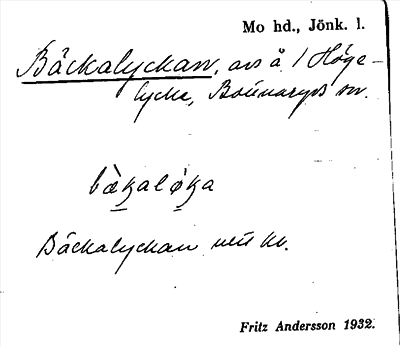 Mo hd., Jönk. l.
Bäckalyckan, avs å 1 Höge-
lycke, Bottnaryds sn.
bäkaløka
Bäckalyckan utt kv.
Fritz Andersson 1932.